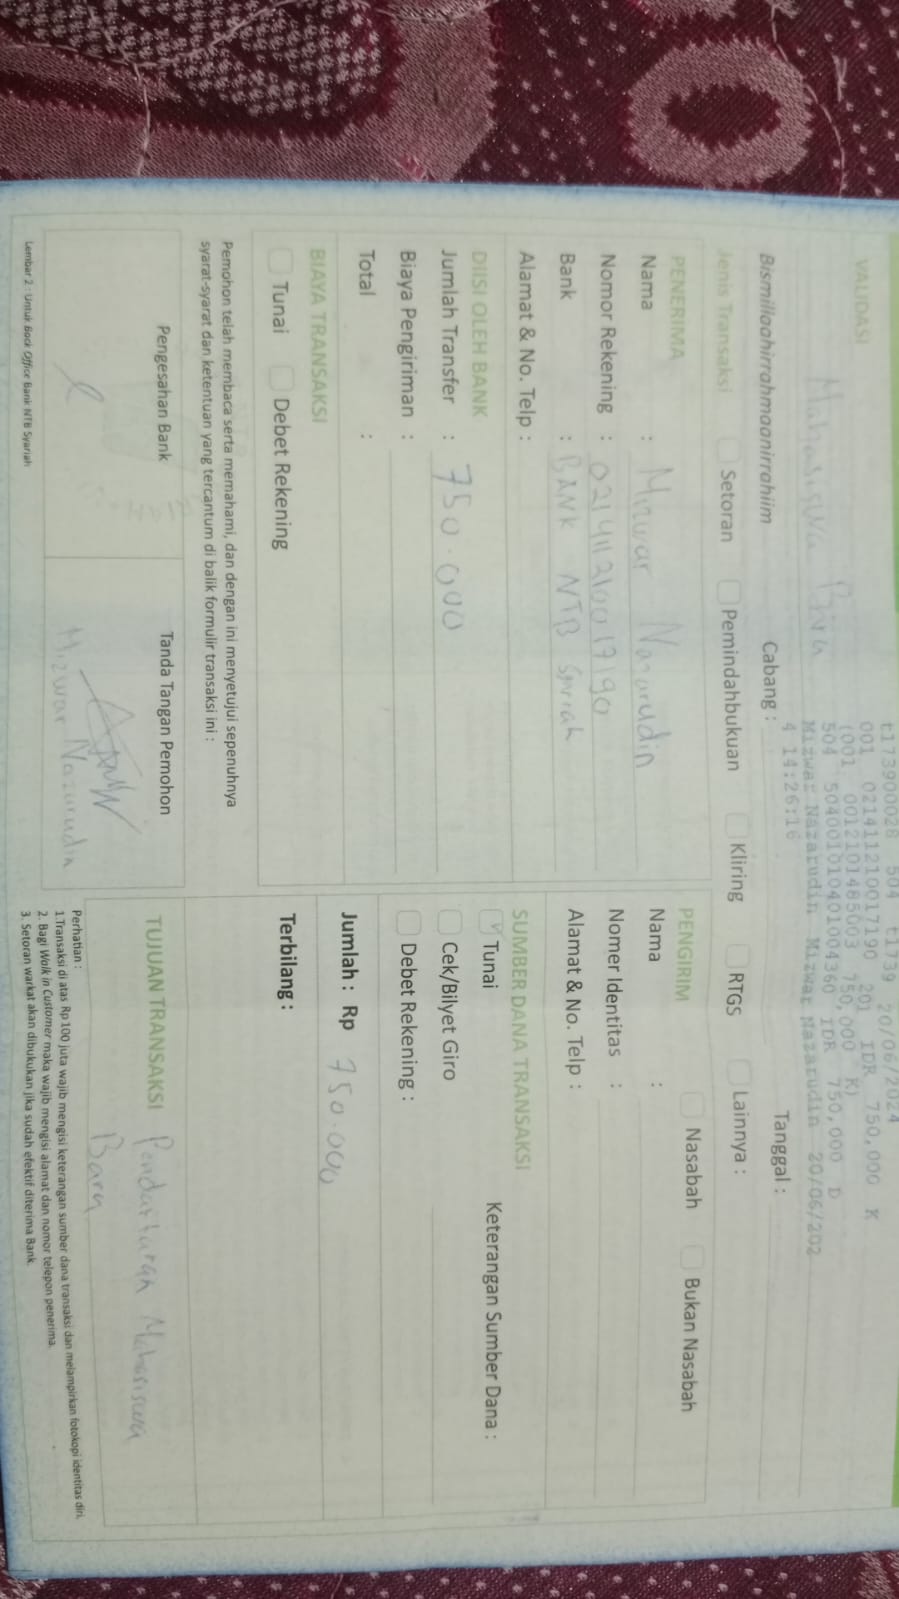 t173900028 504 t1739 20/06/2024
001 02141121001 7190 201 IDR 750,000 K
(001 0012101485003 750,000 K)
504 5040010104010043 60 IDR 750,000 D
Mizwar Nazarudin Mizwar Nazarudin 20/06/202
4 14:26:16
VALIDASI
Mahasiswa
Bismillaahirrahmaanirrahiim Cabang : Tanggal :
Jenis Transaksi Setoran Pemindahbukuan Kliring RTGS Lainnya :
PENERIMA
Nama : Mizwar Nazarudin
Nomor Rekening : 02141121001 7190
Bank : BANK NTB Syariah
Alamat & No. Telp :
DIISI OLEH BANK
Jumlah Transfer : 750.000
Biaya Pengiriman :
Total :
BIAYA TRANSAKSI
Tunai Debet Rekening
Pemohon telah membaca serta memahami, dan dengan ini menyetujui sepenuhnya
syarat-syarat dan ketentuan yang tercantum di balik formulir transaksi ini :
Pengesahan Bank Tanda Tangan Pemohon
Mizwar Nazarudin
Lembar 2 : Untuk Back Office Bank NTB Syariah
PENGIRIM Nasabah Bukan Nasabah
Nama :
Nomer Identitas :
Alamat & No. Telp :
SUMBER DANA TRANSAKSI
Tunai Keterangan Sumber Dana :
Cek/Bilyet Giro
Debet Rekening :
Jumlah : Rp 750.000
Terbilang :
TUJUAN TRANSAKSI Pendaftaran Mahasiswa
Baru
Perhatian :
1.Transaksi di atas Rp 100 juta wajib mengisi keterangan sumber dana transaksi dan melampirkan fotokopi identitas diri.
2. Bagi Walk in Customer maka wajib mengisi alamat dan nomor telepon penerima.
3. Setoran warkat akan dibukukan jika sudah efektif diterima Bank.